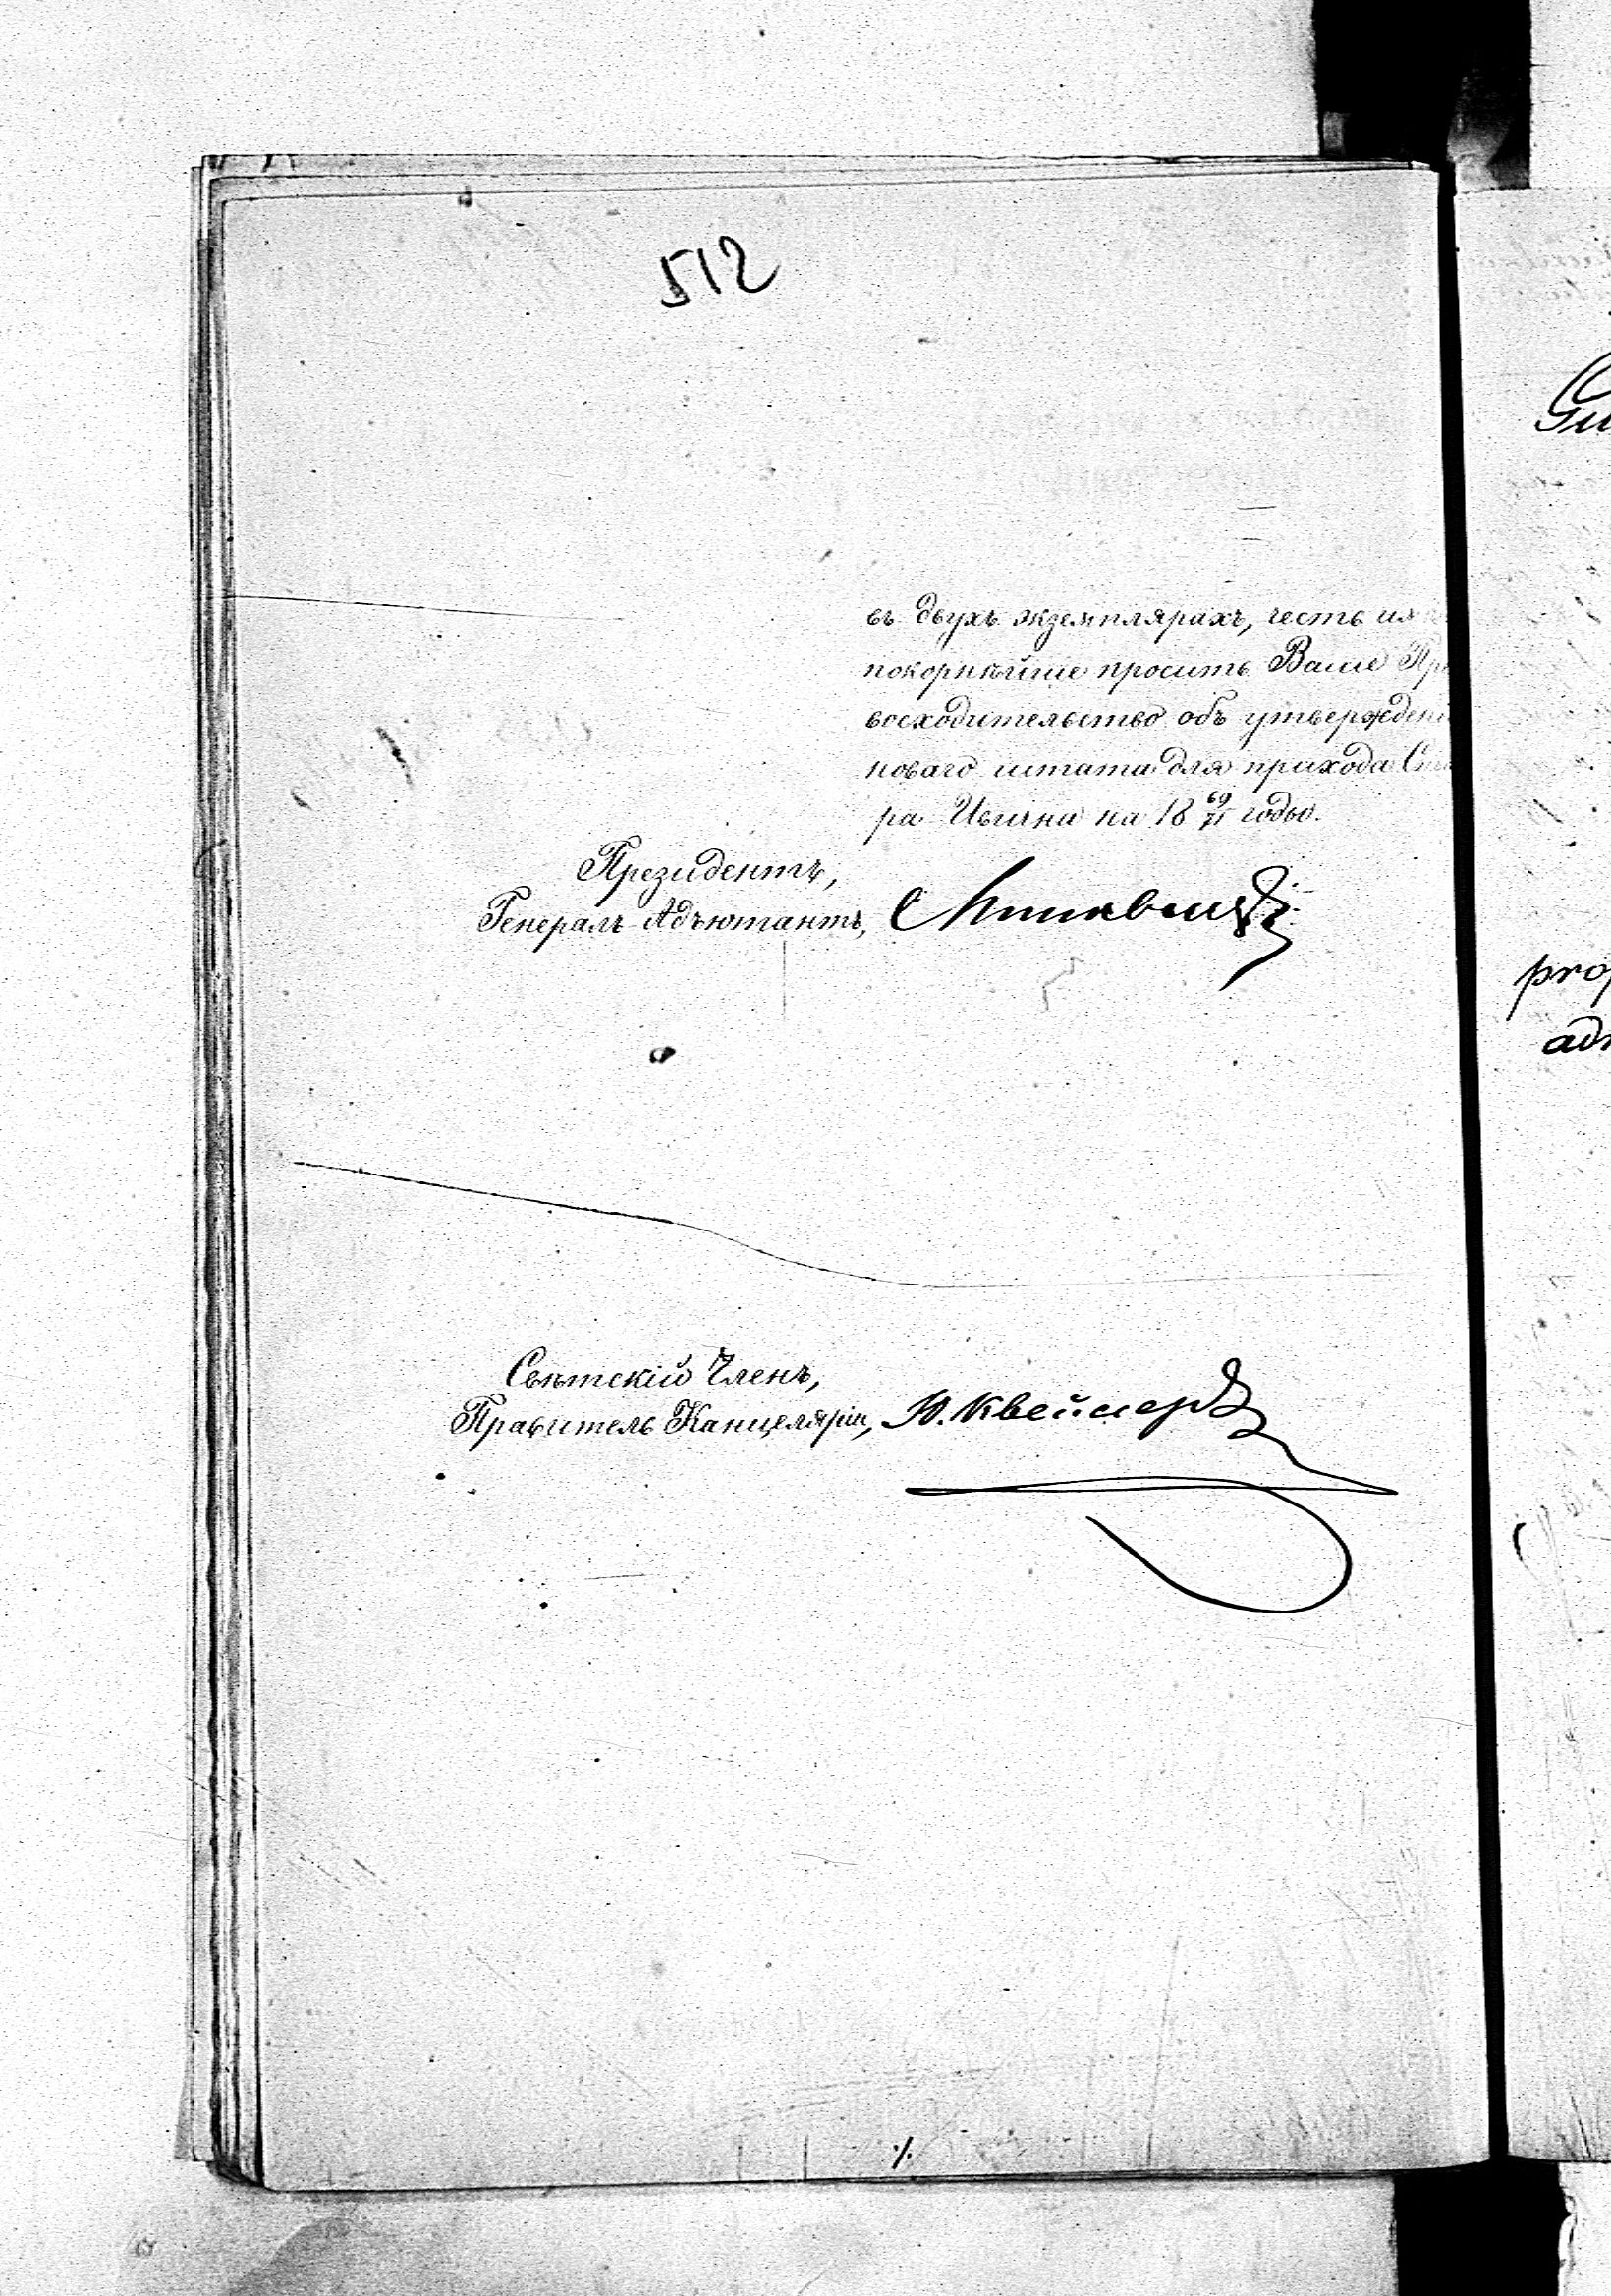 512
въ двухъ экземплярахъ, честь им
покорнѣйше просить Ваше Пре
восходительство объ утвержденi
новаго штата для прихода Ста
ра Ивична на 18 69/71 годы.
Президентъ,
Генералъ-Адъютантъ,
Свѣтскій Членъ,
Правитель Канцеляріи, Ю. Квеймеръ
Gu
prop
adr